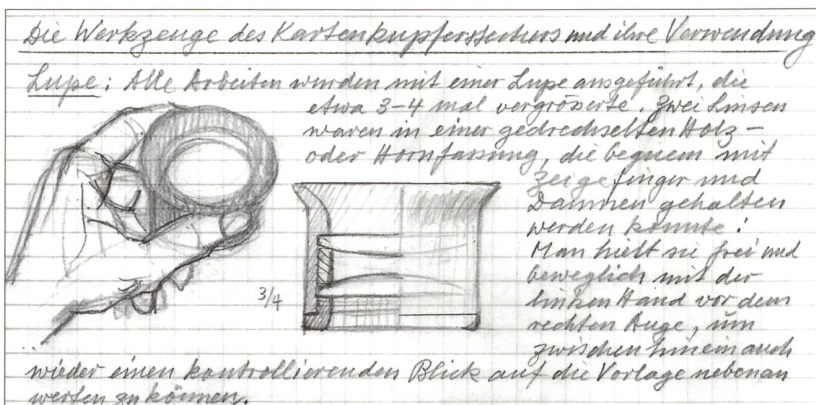 Die Werkzeuge des Kartenkupferstechers und ihre Verwendung
Lupe: Alle Arbeiten wurden mit einer Lupe ausgeführt, die
etwa 3-4 mal vergrösserte. Zwei Linsen
waren in einer gedrechselten Holz-
oder Hornfassung, die bequem mit
Zeigefinger und
Daumen gehalten
werden konnte!
Man hielt sie frei und
beweglich mit der
linken Hand vor dem
rechten Auge, um
zwischen hinein auch
wieder einen kontrollierenden Blick auf die Vorlage nebenan
werfen zu können.
3/4